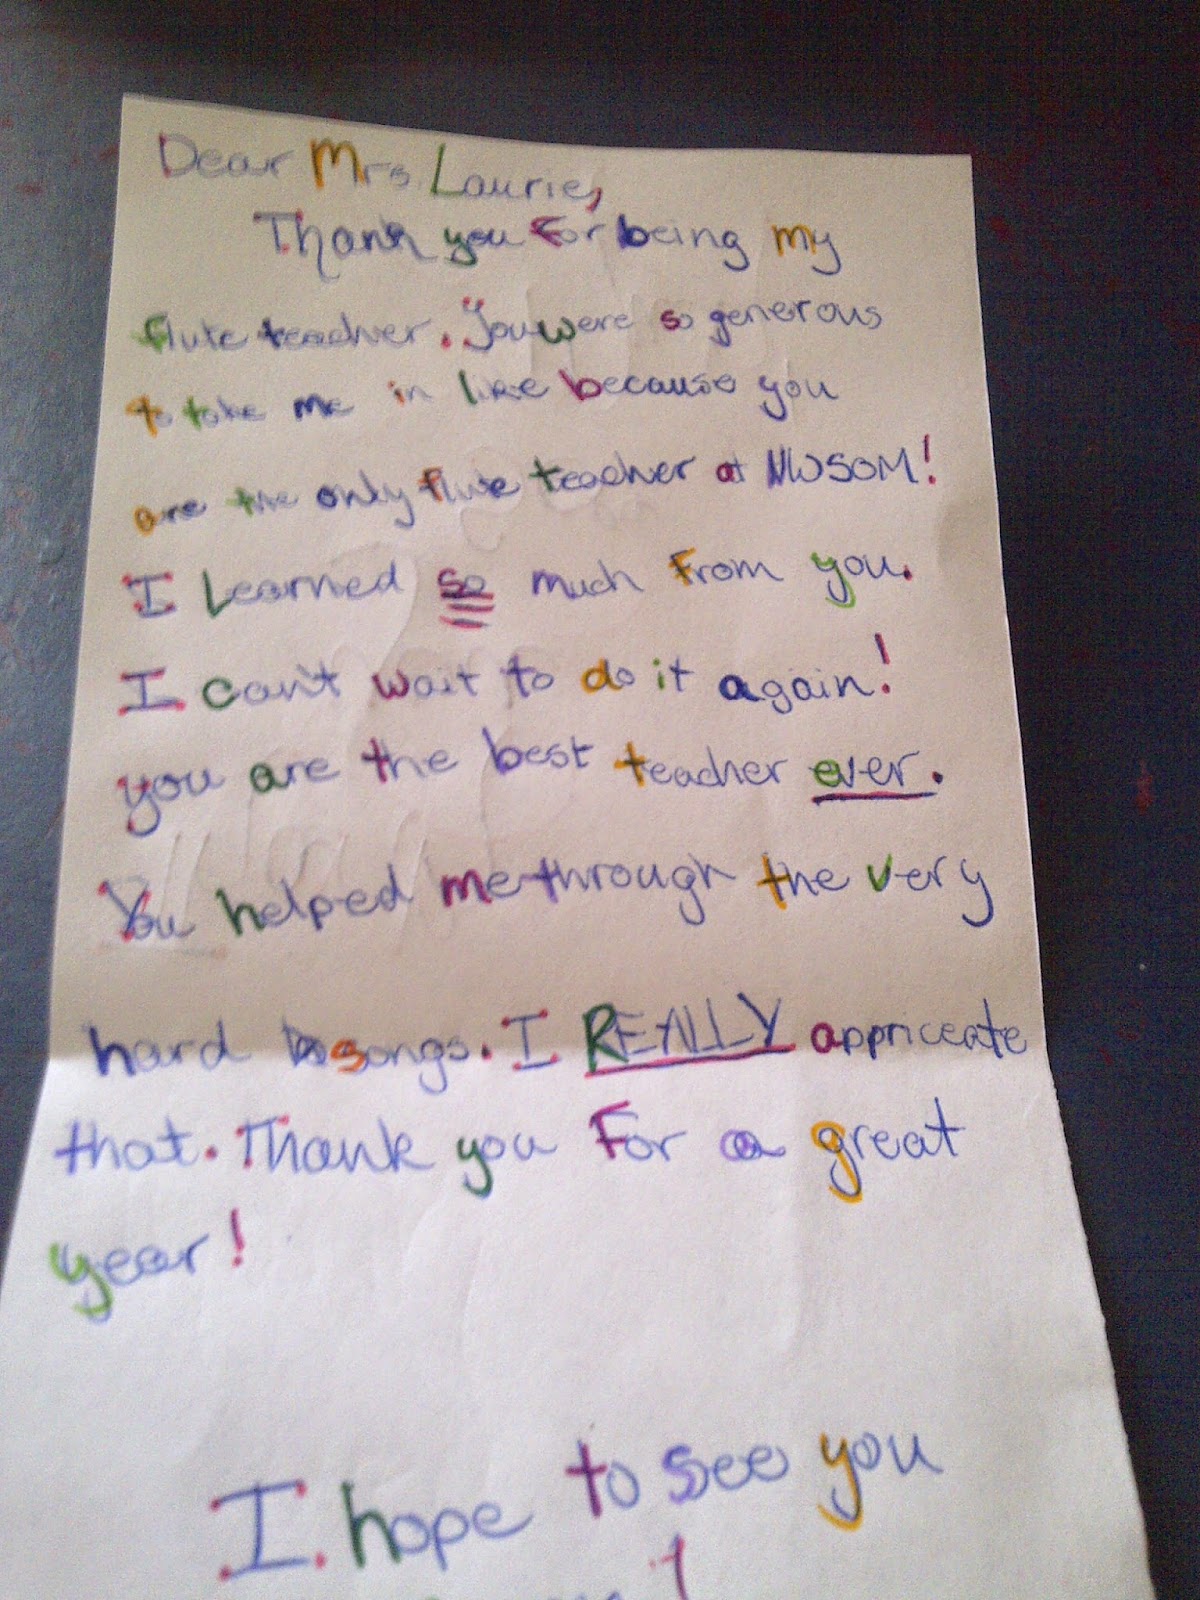 Dear Mrs. Laurie,
Thank you For being my
flute teacher. You were so generous
to take me in like because you
are the only flute teacher at NWSOM!
I Learned so much From you.
I can't wait to do it again!
you are the best teacher ever.
You helped me through the very
hard songs. I REALLY appriceate
that. Thank you For a great
year!
I hope to see you